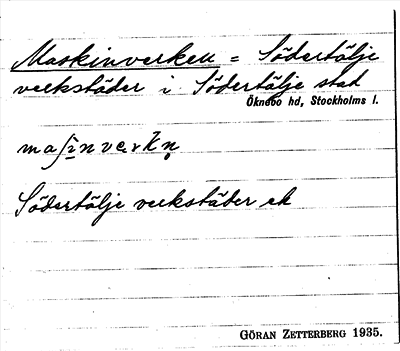 Maskinverken = Södertälje
verkstäder i Södertälje stad
Öknebo hd, Stockholms l.
maʃinværkn̥
Södertälje verkstäder ek
GÖRAN ZETTERBERG 1935.